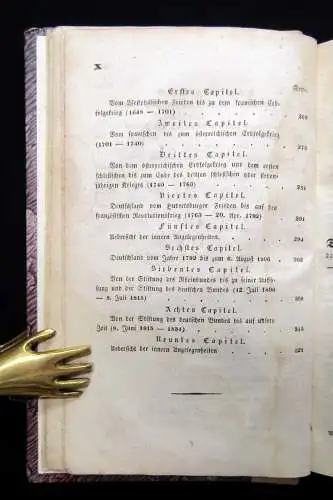 X
Seite.
Erstes Capitel.
Vom Westphälischen Frieden bis zu dem spanischen Erb-
folgekrieg (1648 — 1701) . . . . . . 269
Zweites Capitel.
Vom spanischen bis zum österreichischen Erbfolgekrieg
(1701 — 1740) . . . . . . . 275
Drittes Capitel.
Von dem österreichischen Erbfolgekrieg und dem ersten
schlesischen bis zum Ende des dritten schlesischen oder sieben-
jährigen Krieges (1740 — 1763) . . . . . 281
Viertes Capitel.
Deutschland vom Hubertsburger Frieden bis auf den
französischen Revolutionskrieg (1763 — 20. Apr. 1792) . 291
Fünftes Capitel.
Uebersicht der innern Angelegenheiten . . . . 294
Sechstes Capitel.
Deutschland vom Jahre 1792 bis zum 6. August 1806 . 302
Siebentes Capitel.
Von der Stiftung des Rheinbundes bis zu seiner Auflö-
sung und der Stiftung des deutschen Bundes (12 Juli 1806
— 8. Juli 1815) . . . . . . .
Achtes Capitel.
Von der Stiftung des deutschen Bundes bis auf unsere
Zeit (9. Juni 1815 — 1834) . . . . . 315
Neuntes Capitel.
Uebersicht der innern Angelegenheiten . . . . 321